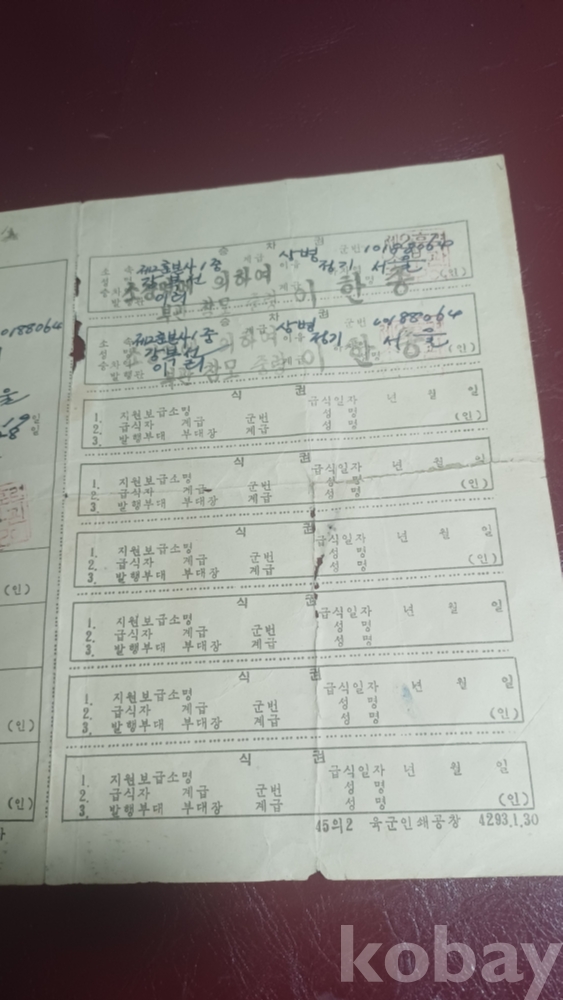 0188064
(인)
(인)
(인)
승 차 권
소 속 제2훈본사1중 계급 상병 군번 10188064
성 명 강복선
이리 정기 서울 (인)
발행관
의하여
부관 참모 이 한 종
승 차 권
소 속 제2훈본사1중 계급 상병 군번 10188064
성 명 강복선
이리 정기 서울 (인)
발행관
의하여
부관 참모 이 한 종
식 권
1. 지원보급소명 급식일자 년 월 일
2. 급식자 계급 군번 성 명
3. 발행부대 부대장 계급 성 명 (인)
식 권
1. 지원보급소명 급식일자 년 월 일
2. 급식자 계급 군번 성 명
3. 발행부대 부대장 계급 성 명 (인)
식 권
1. 지원보급소명 급식일자 년 월 일
2. 급식자 계급 군번 성 명
3. 발행부대 부대장 계급 성 명 (인)
식 권
1. 지원보급소명 급식일자 년 월 일
2. 급식자 계급 군번 성 명
3. 발행부대 부대장 계급 성 명 (인)
식 권
1. 지원보급소명 급식일자 년 월 일
2. 급식자 계급 군번 성 명
3. 발행부대 부대장 계급 성 명 (인)
식 권
1. 지원보급소명 급식일자 년 월 일
2. 급식자 계급 군번 성 명
3. 발행부대 부대장 계급 성 명 (인)
45의2 육군인쇄공창 4293.1.30
kobay